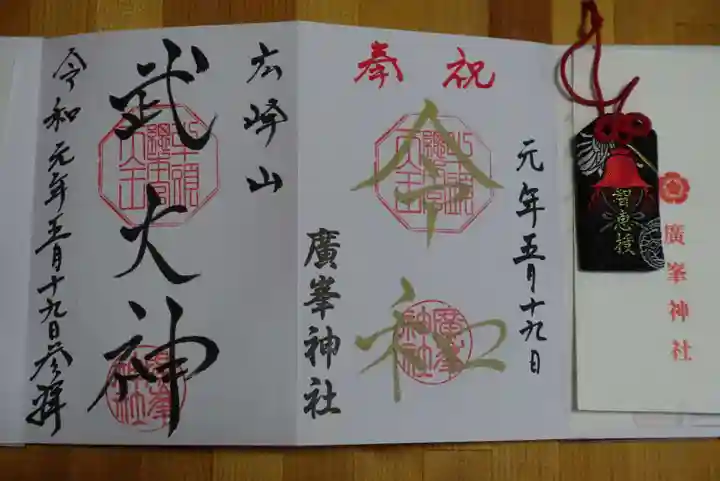 奉祝
令和
元年五月十九日
廣峯神社
広峰山
武大神
令和元年五月十九日参拝
智恵授
廣峯神社
廣峯神社